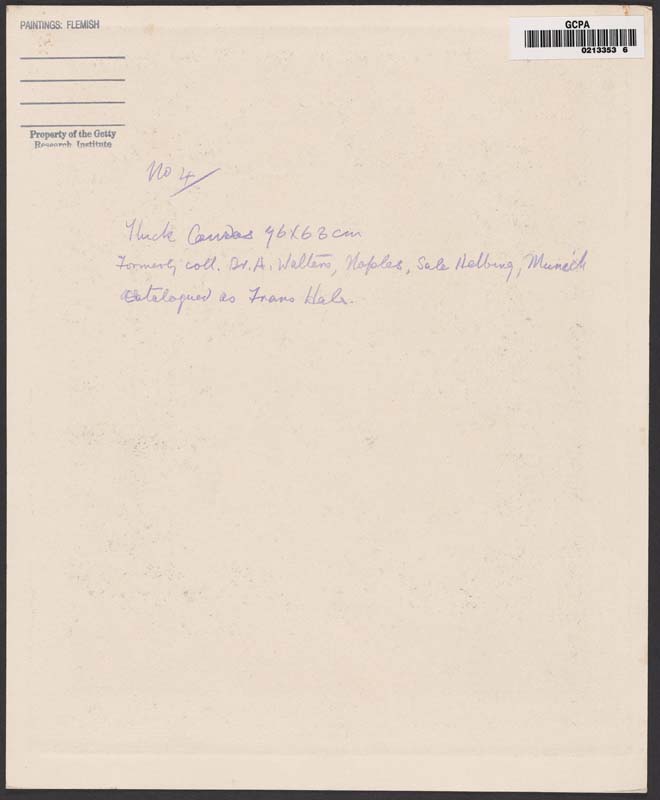 PAINTINGS: FLEMISH
GCPA
0213353 6
Property of the Getty
Research Institute
No 4
Thick Canvas 76X63cm
Formerly coll. Dr. A. Walters, Naples, Sale Helbing, Munich
Catalogued as Frans Hals.